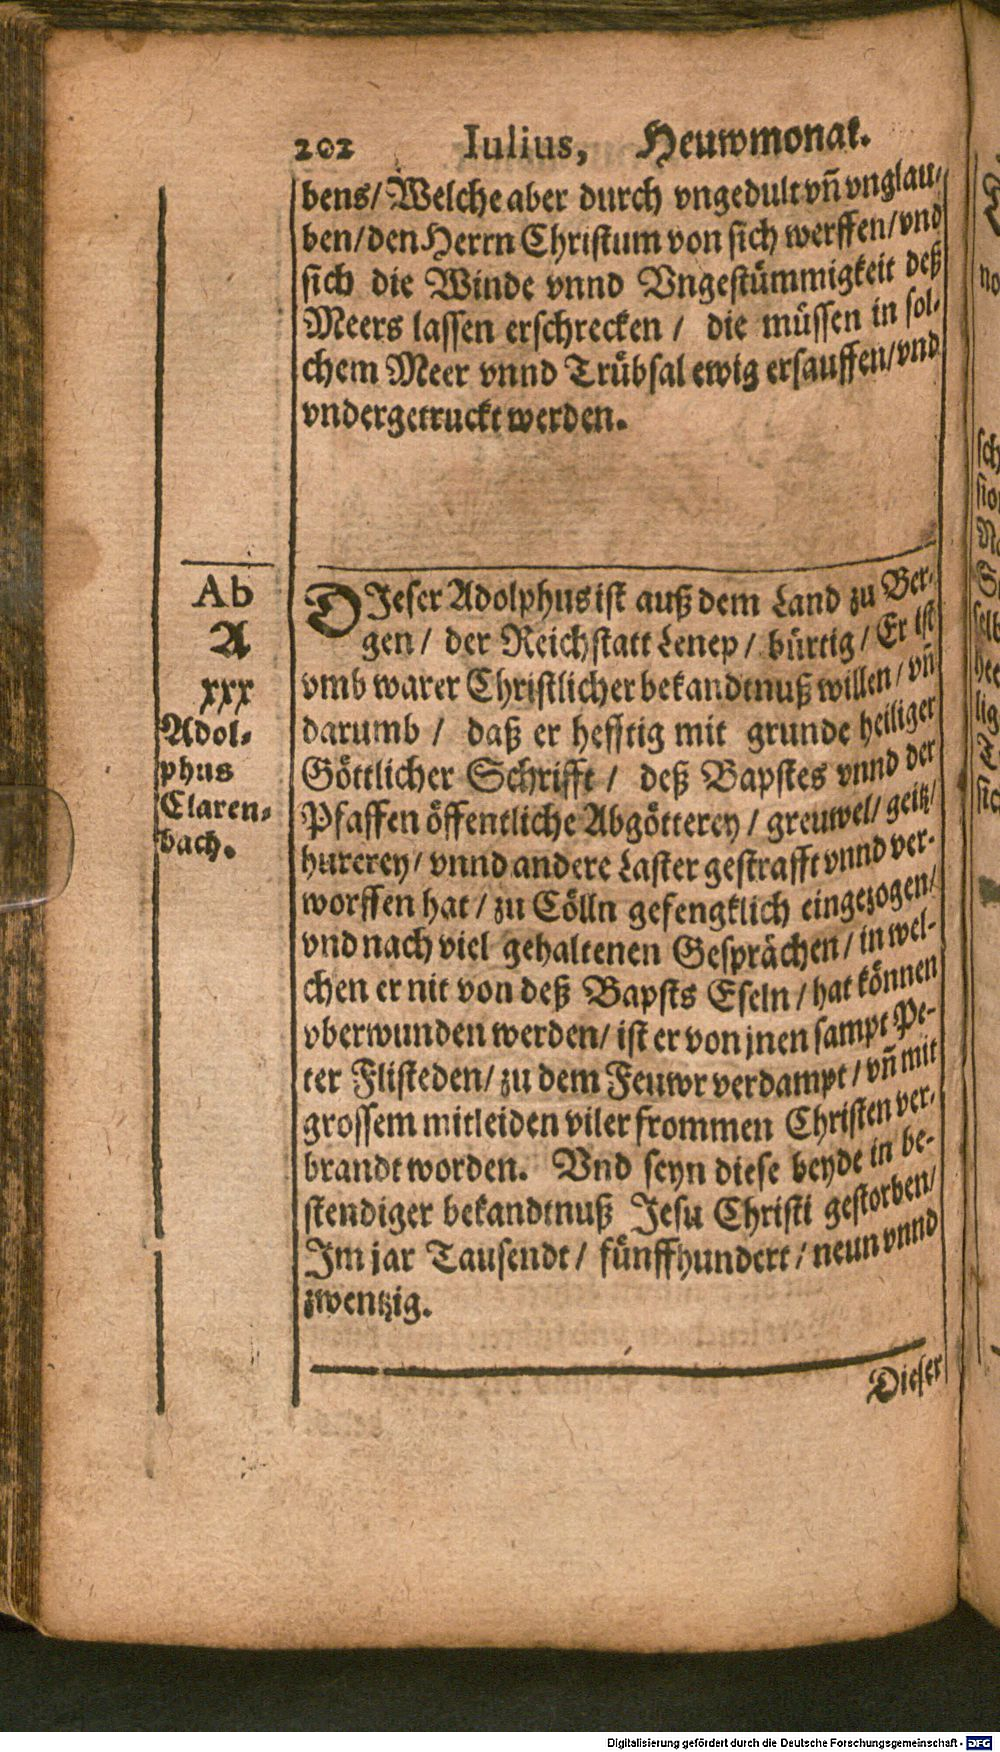 202 Iulius, Heuwmonat.
bens/ Welche aber durch vngedult vñ vnglau-
ben/ den Herrn Christum von sich werffen/ vnd
sich die Winde vnnd Vngestümmigkeit deß
Meers lassen erschrecken / die müssen in sol-
chem Meer vnnd Trübsal ewig ersauffen/ vnd
vndergetruckt werden.
Ab
A
xxx
Adol-
phus
Claren-
bach.
DJeser Adolphus ist auß dem Land zu Ber-
gen / der Reichstatt Lenep / bürtig / Er ist
vmb warer Christlicher bekandtnuß willen / vñ
darumb / daß er hefftig mit grunde heiliger
Göttlicher Schrifft / deß Bapstes vnnd der
Pfaffen öffentliche Abgötterey / greuwel/ geitz/
hurerey/ vnnd andere Laster gestrafft vnnd ver-
worffen hat / zu Cölln gefengklich eingezogen/
vnd nach viel gehaltenen Gesprächen / in wel-
chen er nit von deß Bapsts Eseln / hat können
vberwunden werden/ ist er von jnen sampt Pe-
ter Flisteden/ zu dem Feuwr verdampt / vñ mit
grossem mitleiden viler frommen Christen ver-
brandt worden. Vnd seyn diese beyde in be-
stendiger bekandtnuß Jesu Christi gestorben/
Im jar Tausendt / fünffhundert / neun vnnd
zwentzig.
Dieser
Digitalisierung gefördert durch die Deutsche Forschungsgemeinschaft - DFG